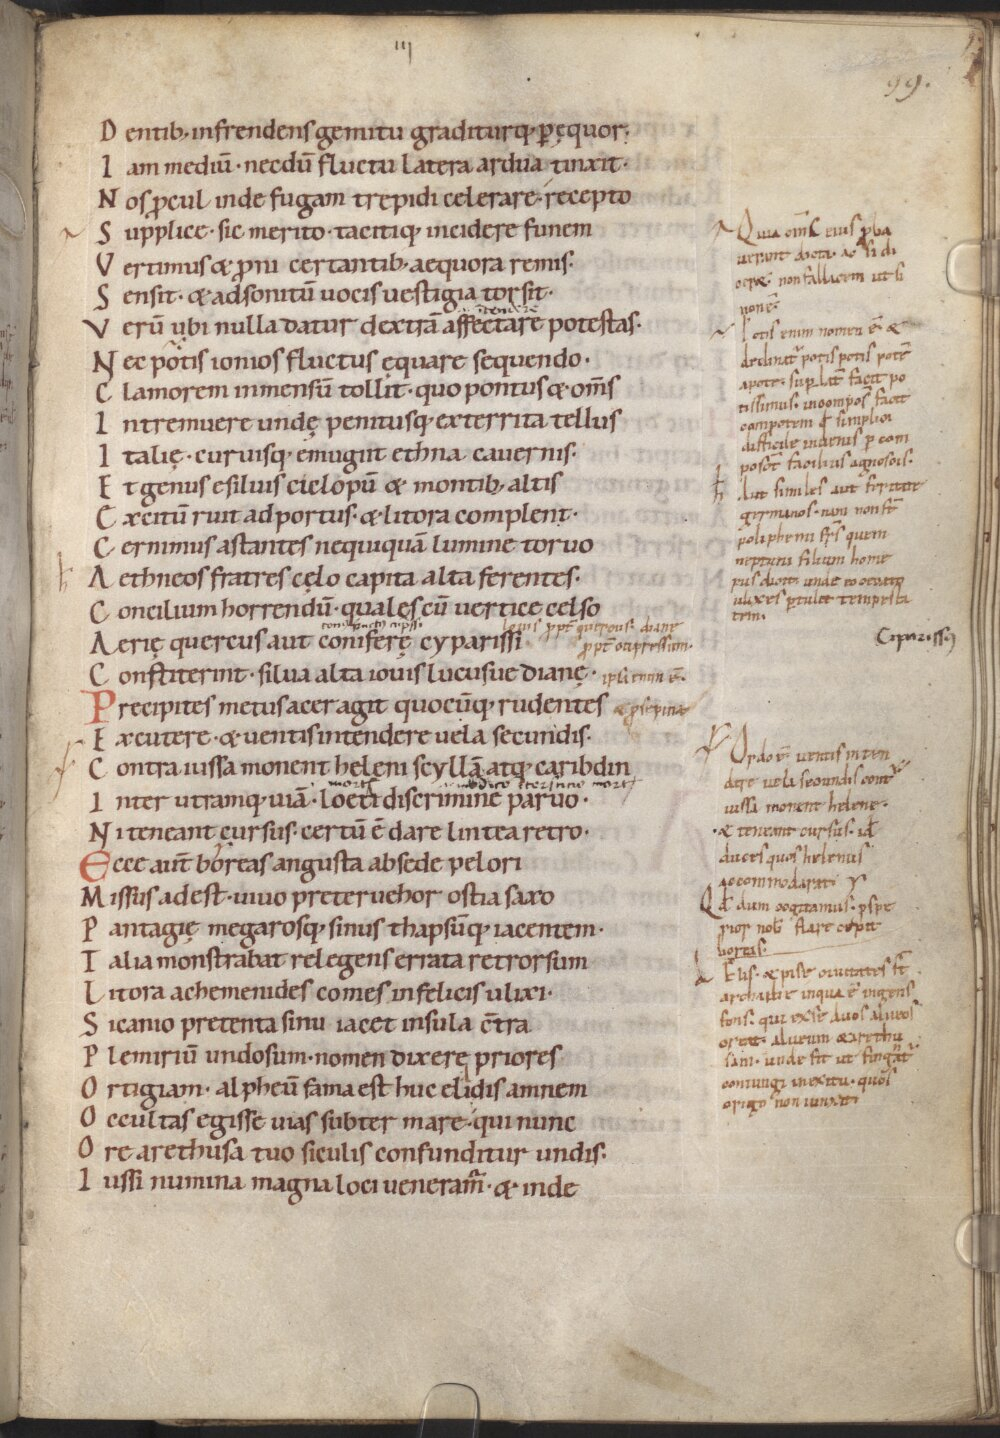 III
99.
D entib; infrendens gemitu graditurq; p ęquor;
I am mediū · necdū fluctu latera ardua tinxit ·
N os pcul inde fugam trepidi celerare · recepto
S upplice · sic merito · tacitiq; incidere funem
V ertimus & proni certantib; aequora remis ·
S ensit · & ad sonitū uocis uestigia torsit ·
V erū ubi nulla datur dextrā affectare potestas ·
N ec potis ionios fluctus equare sequendo ·
C lamorem inmensū tollit · quo pontus & · omīs
I ntremuere undę penitusq; exterrita tellus
I talię · curuisq; emugiit ethna cauernis ·
E t genus e siluis ciclopū & montib; altis
E xcitū ruit ad portus · & litora complent ·
C ernimus astantes nequiquā lumine toruo
A ethneos fratres cęlo capita alta ferentes ·
C oncilium horrendū · quales cū uertice celso
A erię quercus aut conifere cyparissi
C onstiterint · silua alta iouis lucusue dianę ·
P recipites metus acer agit quocūq; rudentes
E xcutere · & uentis intendere uela secundis ·
C ontra iussa monent heleni scyllā atq; caribdin
I nter utramq; uiā · loeti discrimine paruo ·
N i teneant cursus · certū ē dare lintea retro ·
E cce aut boreas angusta ab sede pelori
M issus adest · uiuo preteruehor ostia saxo
P antagię megarosq; sinus thapsūq; iacentem ·
T alia monstrabat relegens errata retrorsum
L itora achemenides comes infelicis ulixi ·
S icanio pretenta sinu iacet insula ct̄ra
P lemiriū undosum · nomen dixere priores
O rtigiam · alpheū fama est huc elidis amnem
O ccultas egisse uias subter mare · qui nunc
O re arethusa tuo siculis confunditur undis ·
I ussi numina magna loci ueneram̄ · & inde
non fallacem ut si
non ē
Potis enim nomen ē · &
potis potis pote
tissimus ·
difficile inuenis p com
facilius agnoscis ·
Aut similes aut feritate
germanos · nam non st̄
poliphemi frs̄ quem
neptuni filium home
rus dicit unde
ulixes ptulit tempesta
tem ·
Ciparissꝰ
Ordo ē uentis inten
dere uela secundis cont̄
iussa monent heleni ·
& teneant cursus · id
duces quos helenus
accommodarat
Qd dum cogitamus · pspe
rior nob flare cepit
boreas ·
Elis · & pise ciuitates st̄
archadie in qua ē ingens
fons · qui ex se duos alueos
alueum & arethu
sam · unde fit ut fingat̄
coniungi in exitu · quos
origo non iunxit